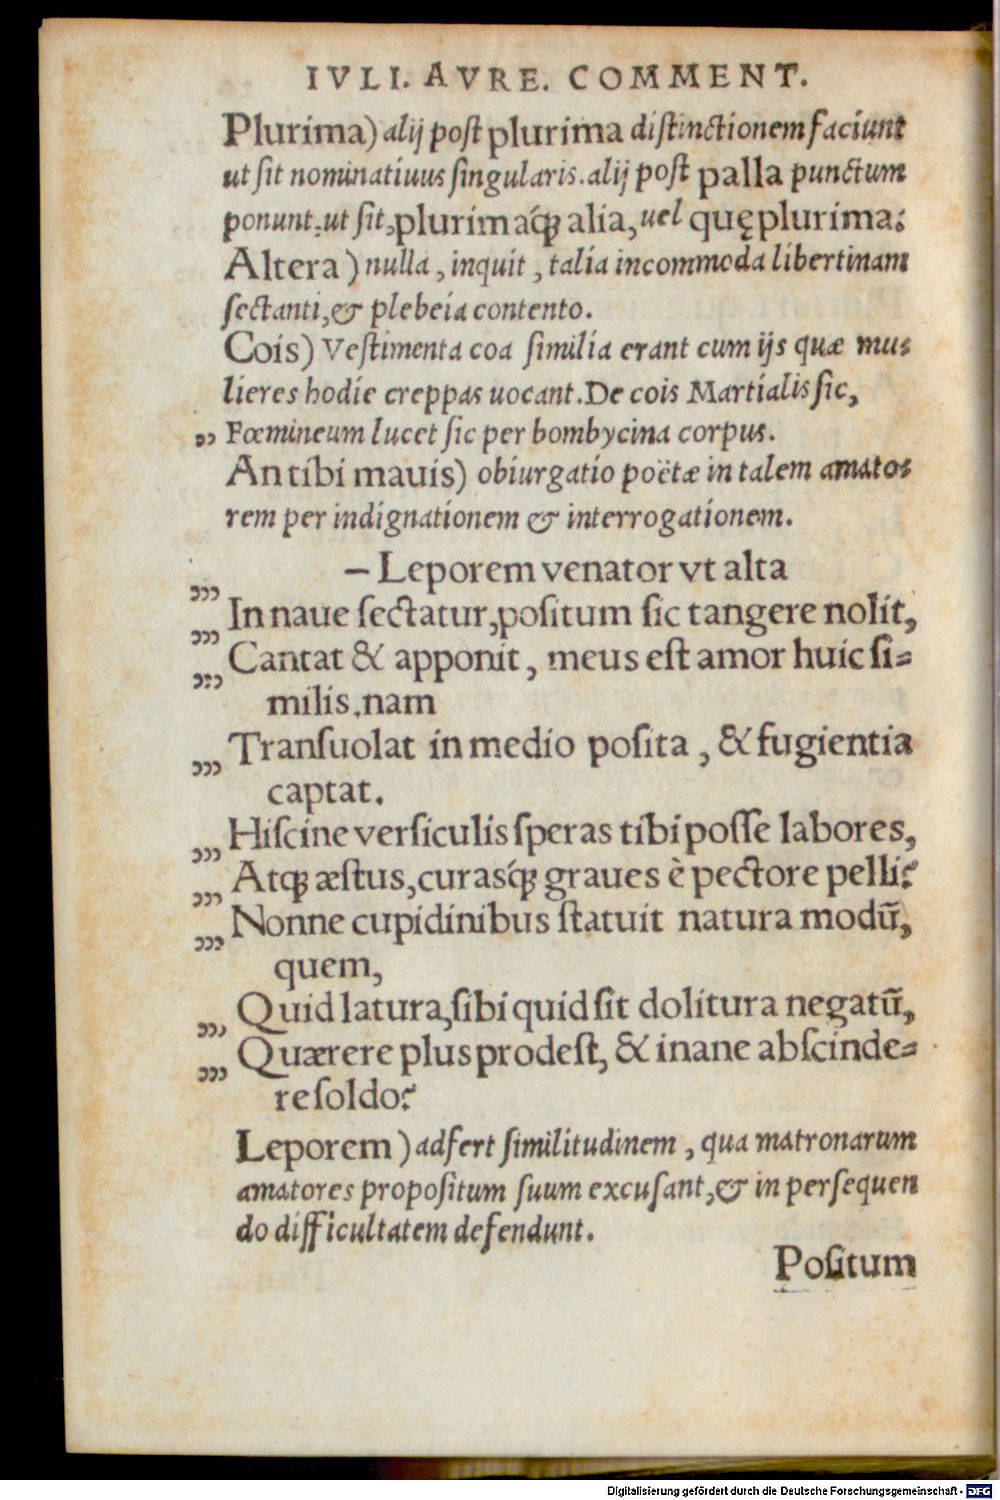 IVLI. AVRE. COMMENT.
Plurima) alij poſt plurima diſtinctionem faciunt
ut ſit nominatiuus ſingularis. alij poſt palla punctum
ponunt, ut ſit, plurimaq́ꝫ alia, uel quę plurima.
Altera) nulla, inquit, talia incommoda libertinam
ſectanti, & plebeia contento.
Cois) Veſtimenta coa ſimilia erant cum ijs quæ mu⸗
lieres hodie creppas uocant. De cois Martialis ſic,
„ Fœmineum lucet ſic per bombycina corpus.
An tibi mauis) obiurgatio poëtæ in talem amato⸗
rem per indignationem & interrogationem.
— Leporem venator vt alta
„, In naue ſectatur, poſitum ſic tangere nolit,
„, Cantat & apponit, meus eſt amor huic ſi⸗
milis. nam
„, Tranſuolat in medio poſita, & fugientia
captat.
„, Hiſcine verſiculis ſperas tibi poſſe labores,
„, Atqꝫ æſtus, curasq́ꝫ graues è pectore pelli?
„, Nonne cupidinibus ſtatuit natura modū,
quem,
„, Quid latura, ſibi quid ſit dolitura negatū,
„, Quærere plus prodeſt, & inane abſcinde⸗
re ſoldo?
Leporem) adfert ſimilitudinem, qua matronarum
amatores propoſitum ſuum excuſant, & in perſequen
do difficultatem defendunt.
Poſitum
Digitalisierung gefördert durch die Deutsche Forschungsgemeinschaft - DFG